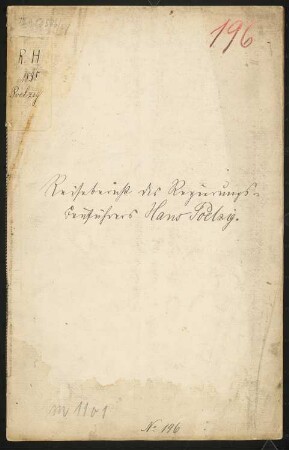 196
R. H
Poelzig
Reisebericht des Regierungs-
bauführers Hans Poelzig.
m 1101
No 196